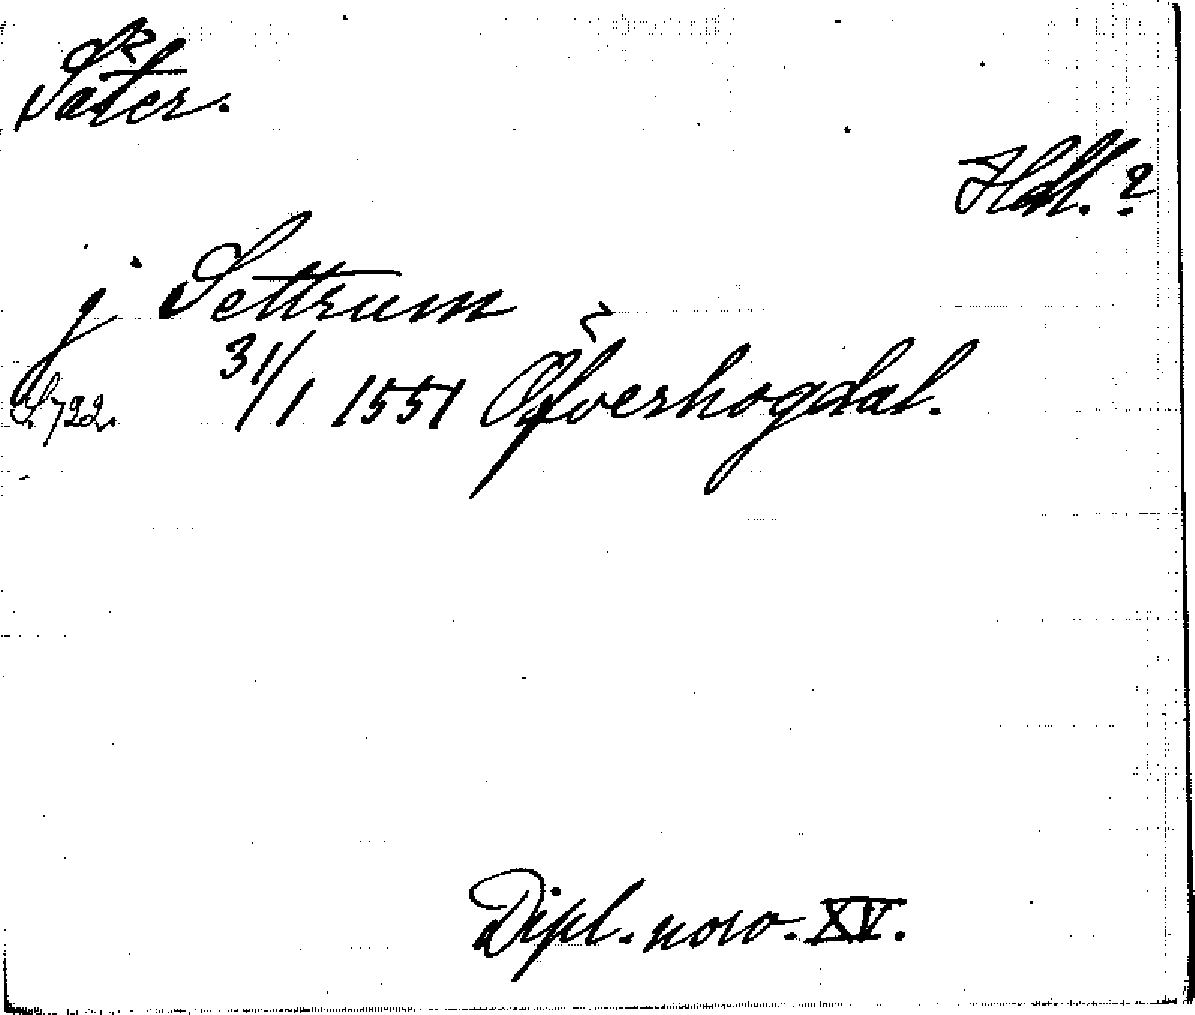 Säter.
Hdl.?
j Settrum
S. 722. 31/1 1551 Öfverhogdal.
Dipl. norv. XV.